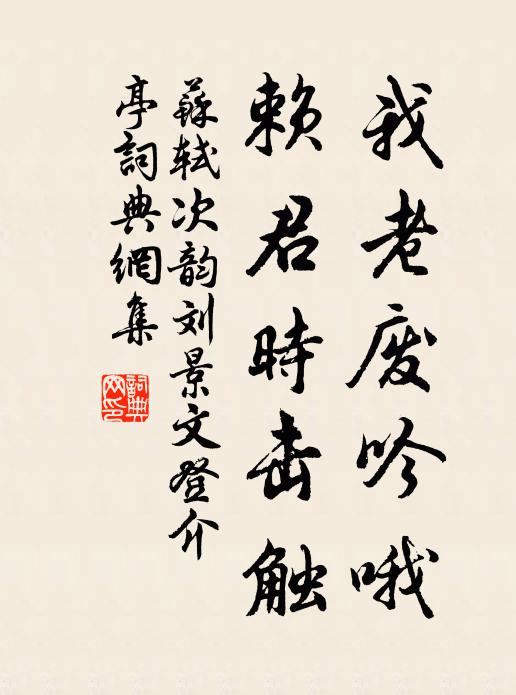 我老废吟哦
赖君時击触
蘇轼次韵刘景文登介
亭詞典網集
詞典
网印